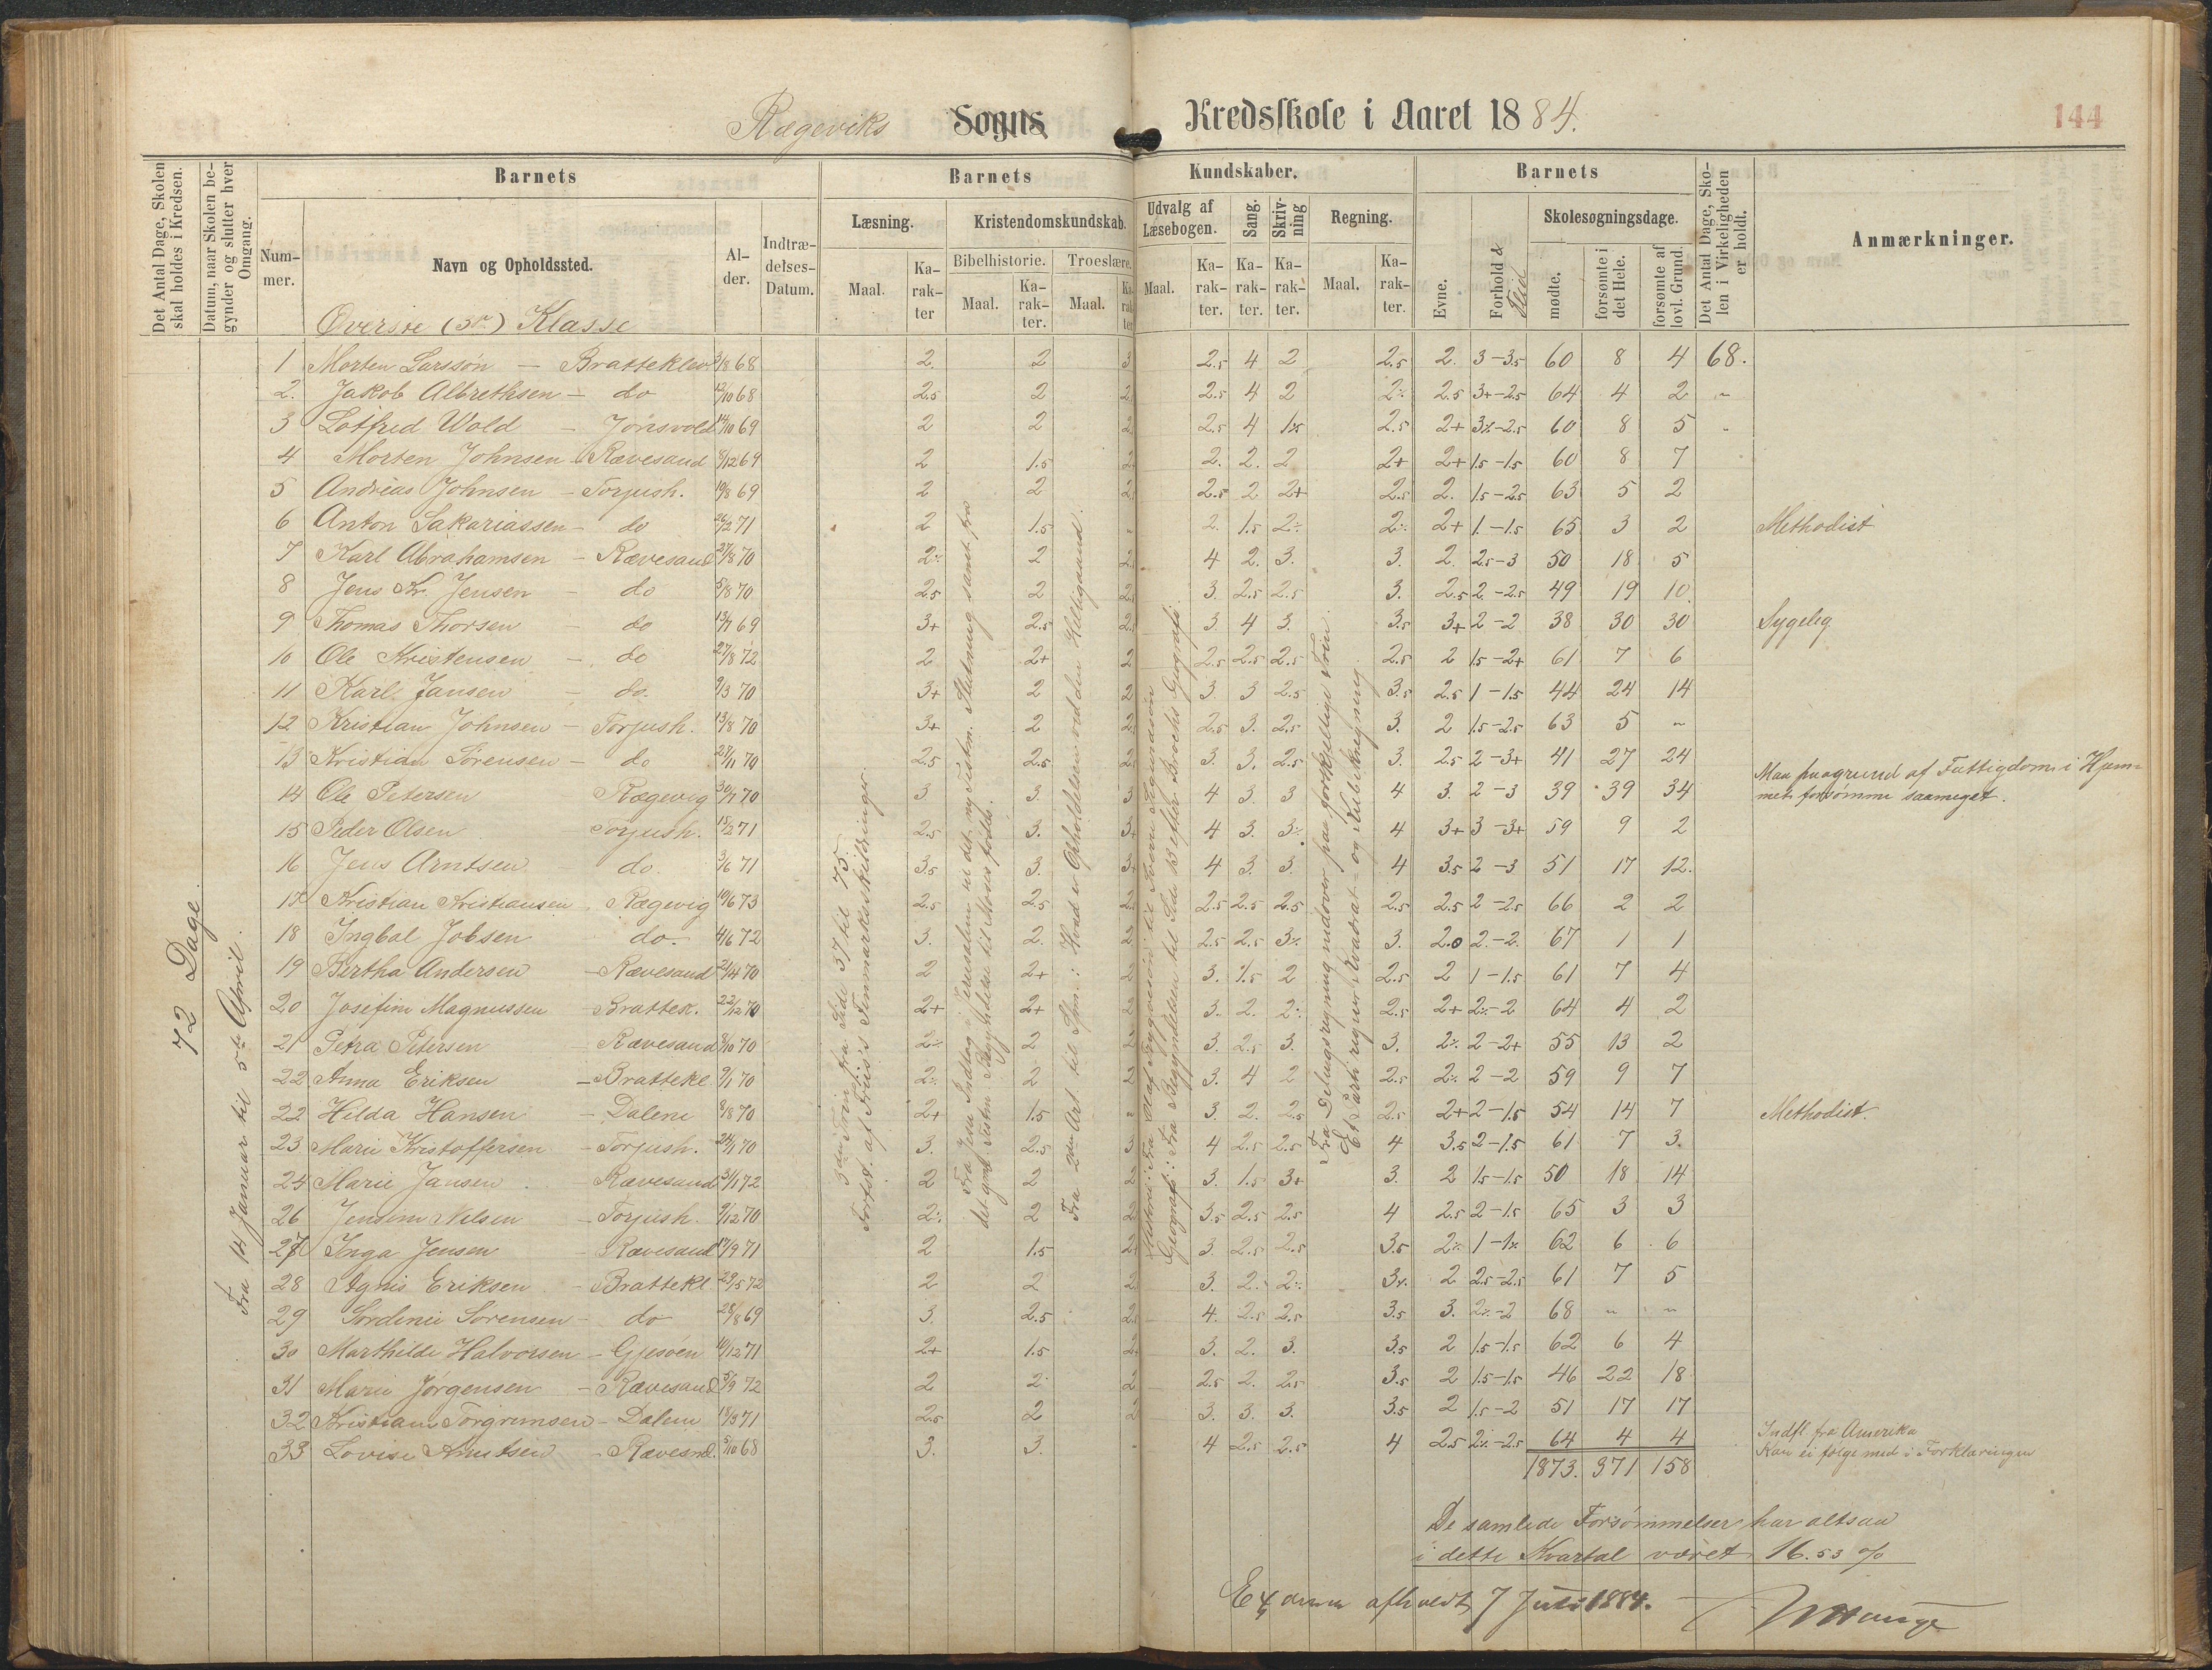 Rægeviks Sogns Kredsskole i Aaret 1884.
144
Det Antal Dage, Skolen skal holdes i Kredsen.
Datum, naar Skolen begynder og slutter hver Omgang.
Barnets
Nummer.
Navn og Opholdssted.
Alder.
Indtrædelses-Datum.
Barnets Kundskaber.
Læsning.
Maal.
Karakter
Kristendomskundskab.
Bibelhistorie.
Maal.
Karakter.
Troeslære.
Maal.
Karakter
Udvalg af Læsebogen.
Maal.
Karakter.
Sang.
Karakter.
Skrivning
Karakter.
Regning.
Maal.
Karakter.
Barnets
Evne.
Forhold & Flid
Skolesøgningsdage.
mødte.
forsømte i det Hele.
forsømte af lovl. Grund.
Det Antal Dage, Skolen i Virkeligheden er holdt.
Anmærkninger.
Øverste (3die) Klasse
72 Dage.
Fra 14 Januar til 5te April.
3die Trin: fra Side 37 til 75.
Fortst. af Friis's Finmarksskildringer.
Fra Jesu Indtog i Jerusalem til det ny Testm. Slutning samt fra
det gml. Testm. Begyndelse til Moses fødes.
Fra 2den Art. til Spm.: Hvad er Opholdelsen ved den Helligaand?
Historie: Fra Olaf Trygvesøn til Sverre Sigurdssøn
Geografi: Fra Begyndelsen til Side 13 efter Brochs Geografi.
Fra Delingsregning nedover paa forskjellige Trin.
Et Parti regner Kvadrat- og Kubikregning.
1 Morten Larssøn — Bratteklev 3/8 68 2. 2 3 2.5 4 2 2.5 2. 3-3.5 60 8 4 68.
2. Jakob Albrethsen — do 12/10 68 2.5 2 2. 2.5 4 2 2÷ 2.5 3+-2.5 64 4 2 "
3 Lotfred Wold — Jonsvold 14/10 69 2 2 2. 2.5 4 1÷ 2.5 2+ 3÷-2.5 60 8 5 "
4 Morten Johnsen - Rævesand 8/12 69 2 1.5 2. 2. 2. 2 2+ 2+ 1.5-1.5 60 8 7
5 Andreas Johnsen - Torjush. 19/8 69 2 2 2. 2.5 2 2+ 2.5 2. 1.5-2.5 63 5 2
6 Anton Sakariassen - do 26/2 71 2 1.5 - 2. 1.5 2÷ 2÷ 2+ 1-1.5 65 3 2 Methodist
7 Karl Abrahamsen - Rævesand 27/8 70 2÷ 2 2. 4 2. 3. 3. 2. 2.5-3 50 18 5
8 Jens Kr. Jensen - do 5/8 70 2.5 2 2. 3. 2.5 2.5 3. 2.5 2-2.5 49 19 10.
9 Thomas Thorsen - do 13/7 69 3+ 2.5 2. 3. 4 3. 3.5 3+ 2-2 38 30 30 Sygelig.
10 Ole Kristensen - do 27/8 72 2 2+ 2 2.5 2.5 2.5 2.5 2 1.5-2+ 61 7 6
11 Karl Jansen - do. 9/3 70 3+ 2 2 3. 3 2.5 3.5 2.5 1-1.5 44 24 14
12 Kristian Johnsen - Torjush. 13/8 70 3+ 2 2. 2.5 3. 2.5 3. 2 1.5-2.5 63 5 "
13 Kristian Sørensen - do 27/11 70 2.5 2.5 2. 3. 3. 2.5 3. 2.5 2-3+ 41 27 24
14 Ole Petersen Rægevig 30/7 70 3 3. 3 4 3. 3 4 3. 2-3 39 39 34 Maa paagrund af Fattigdom i Hjemmet forsømme saameget.
15 Peder Olsen Torjush. 15/2 71 2.5 3. 3+ 4 3. 3÷ 4 3+ 3-3+ 59 9 2
16 Jens Arntsen - do. 3/6 71 3.5 3. 3+ 4 3. 3. 4 3.5 2-3 51 17 12.
17 Kristian Kristiansen. Rægevig 10/6 73 2.5 2.5 2. 2.5 2.5 2.5 2.5 2.5 2-2.5 66 2 2
18 Ingbal Jobsen do. 4/6 72 3. 2. 2 2.5 2.5 3÷ 3. 2.0 2.-2. 67 1 1
19 Bertha Andersen - Rævesand 21/4 70 2 2+ 2 3. 1.5 2 2.5 2 1-1.5 61 7 4
20 Josefine Magnussen - Brattek. 22/12 70 2+ 2+ 2 3. 2. 2÷ 2.5 2+ 2÷-2 64 4 2
21 Petra Petersen - Rævesand 8/10 70 2÷ 2 2 3. 2.5 3. 3. 2÷ 2-2+ 55 13 2
22 Anna Eriksen - Brattekl 9/1 70 2÷ 2 2 3. 4 2 2.5 2÷ 2-2 59 9 7
22 Hilda Hansen - Dalene 9/8 70 2+ 1.5 " 3 2. 2.5 2.5 2+ 2-1.5 54 14 7 Methodist.
23 Marie Kristoffersen - Torjush. 24/1 70 3. 2.5 3 4 2.5 2.5 4 3.5 2-1.5 61 7 3.
24 Marie Jansen - Rævesand 31/1 72 2 2 2 3. 1.5 3+ 3. 2 1.5-1.5 50 18 14
26 Jensine Nilsen - Torjush. 9/12 70 2÷ 2 2. 3.5 2.5 2.5 4 2.5 2-1.5 65 3 3
27 Inga Jensen - Rævesand 17/9 71 2 1.5 2+ 3. 2.5 2.5 3.5 2÷ 1-1÷ 62 6 6
28 Agnis Eriksen - Brattekl 29/5 72 2 2 2. 3. 2. 2÷ 3÷ 2 2.5-2.5 61 7 5
29 Sordine Sørensen - do 28/8 69 3. 2.5 2. 4. 2.5 2.5 3.5 3. 2÷-2 68 " "
30 Marthilde Halvorsen - Gjesøen 10/12 71 2+ 1.5 2+ 3. 2. 3. 3.5 2 1.5-1.5 62 6 4
31 Marie Jørgensen - Rævesand 5/9 72 2 2 2 2.5 2. 2.5 3.5 2 1.5-1.5 46 22 18
32 Kristiane Torgrimsen - Dalene 18/3 71 2.5 2 2 3. 3. 3. 3.5 2 1.5-2 51 17 17
33 Lovise Knutsen - Rævesnd. 5/10 68 3. 3. - 4 2.5 2.5 4 2.5 2÷-2.5 64 4 4 Indfl. fra Amerika Kan ei følge med i Forklaringen
1873. 371 158
De samlede Forsømmelser har altsaa
i dette Kvartal været 16.53 %
Examen afholdt 7 Juli 1884.